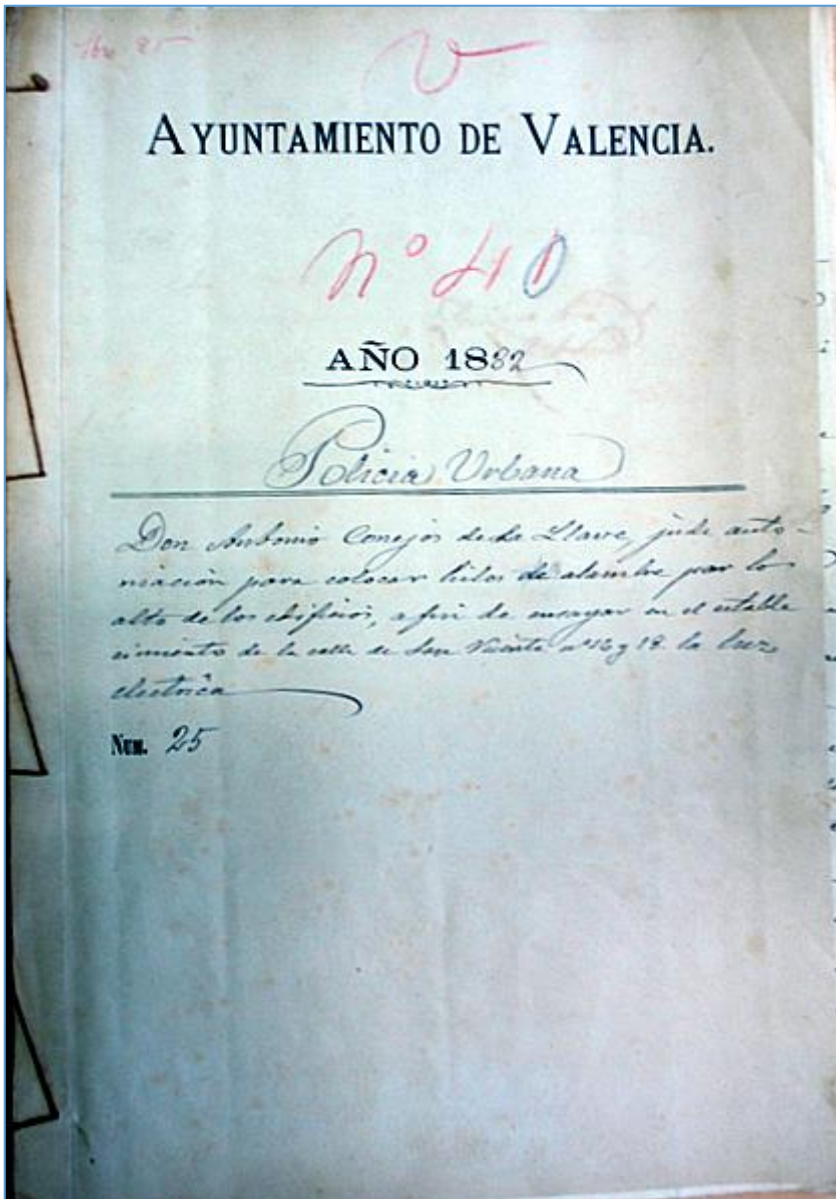 V
AYUNTAMIENTO DE VALENCIA.
Nº 40
AÑO 1882
Policia Urbana
Don Antonio Conejos de La Llave, pide auto-
rización para colocar hilos de alambre por lo
alto de los edificios, a fin de ensayar en el estable
cimiento de la calle de San Vicente nº 16 y 18 la luz
electrica
Num. 25